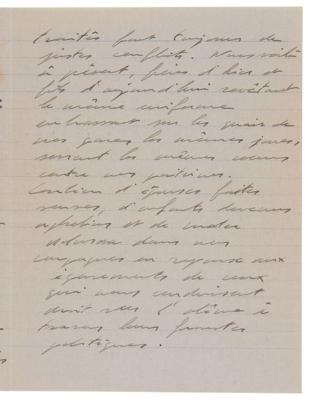 traités font toujours de
justes conflits. Nous voilà
à présent, frères d'hier et
fils d'aujourd'hui revêtant
le même uniforme
embrassant sur les quais de
nos gares les mêmes joues,
serrant les mêmes cœurs
contre nos poitrines.
Combien d'épouses faites
veuves, d'enfants devenus
orphelins et de mater
dolorosa dans nos
campagnes en réponse aux
égarements de ceux
qui nous conduisent
droit vers l'abîme à
travers leurs funestes
politiques.